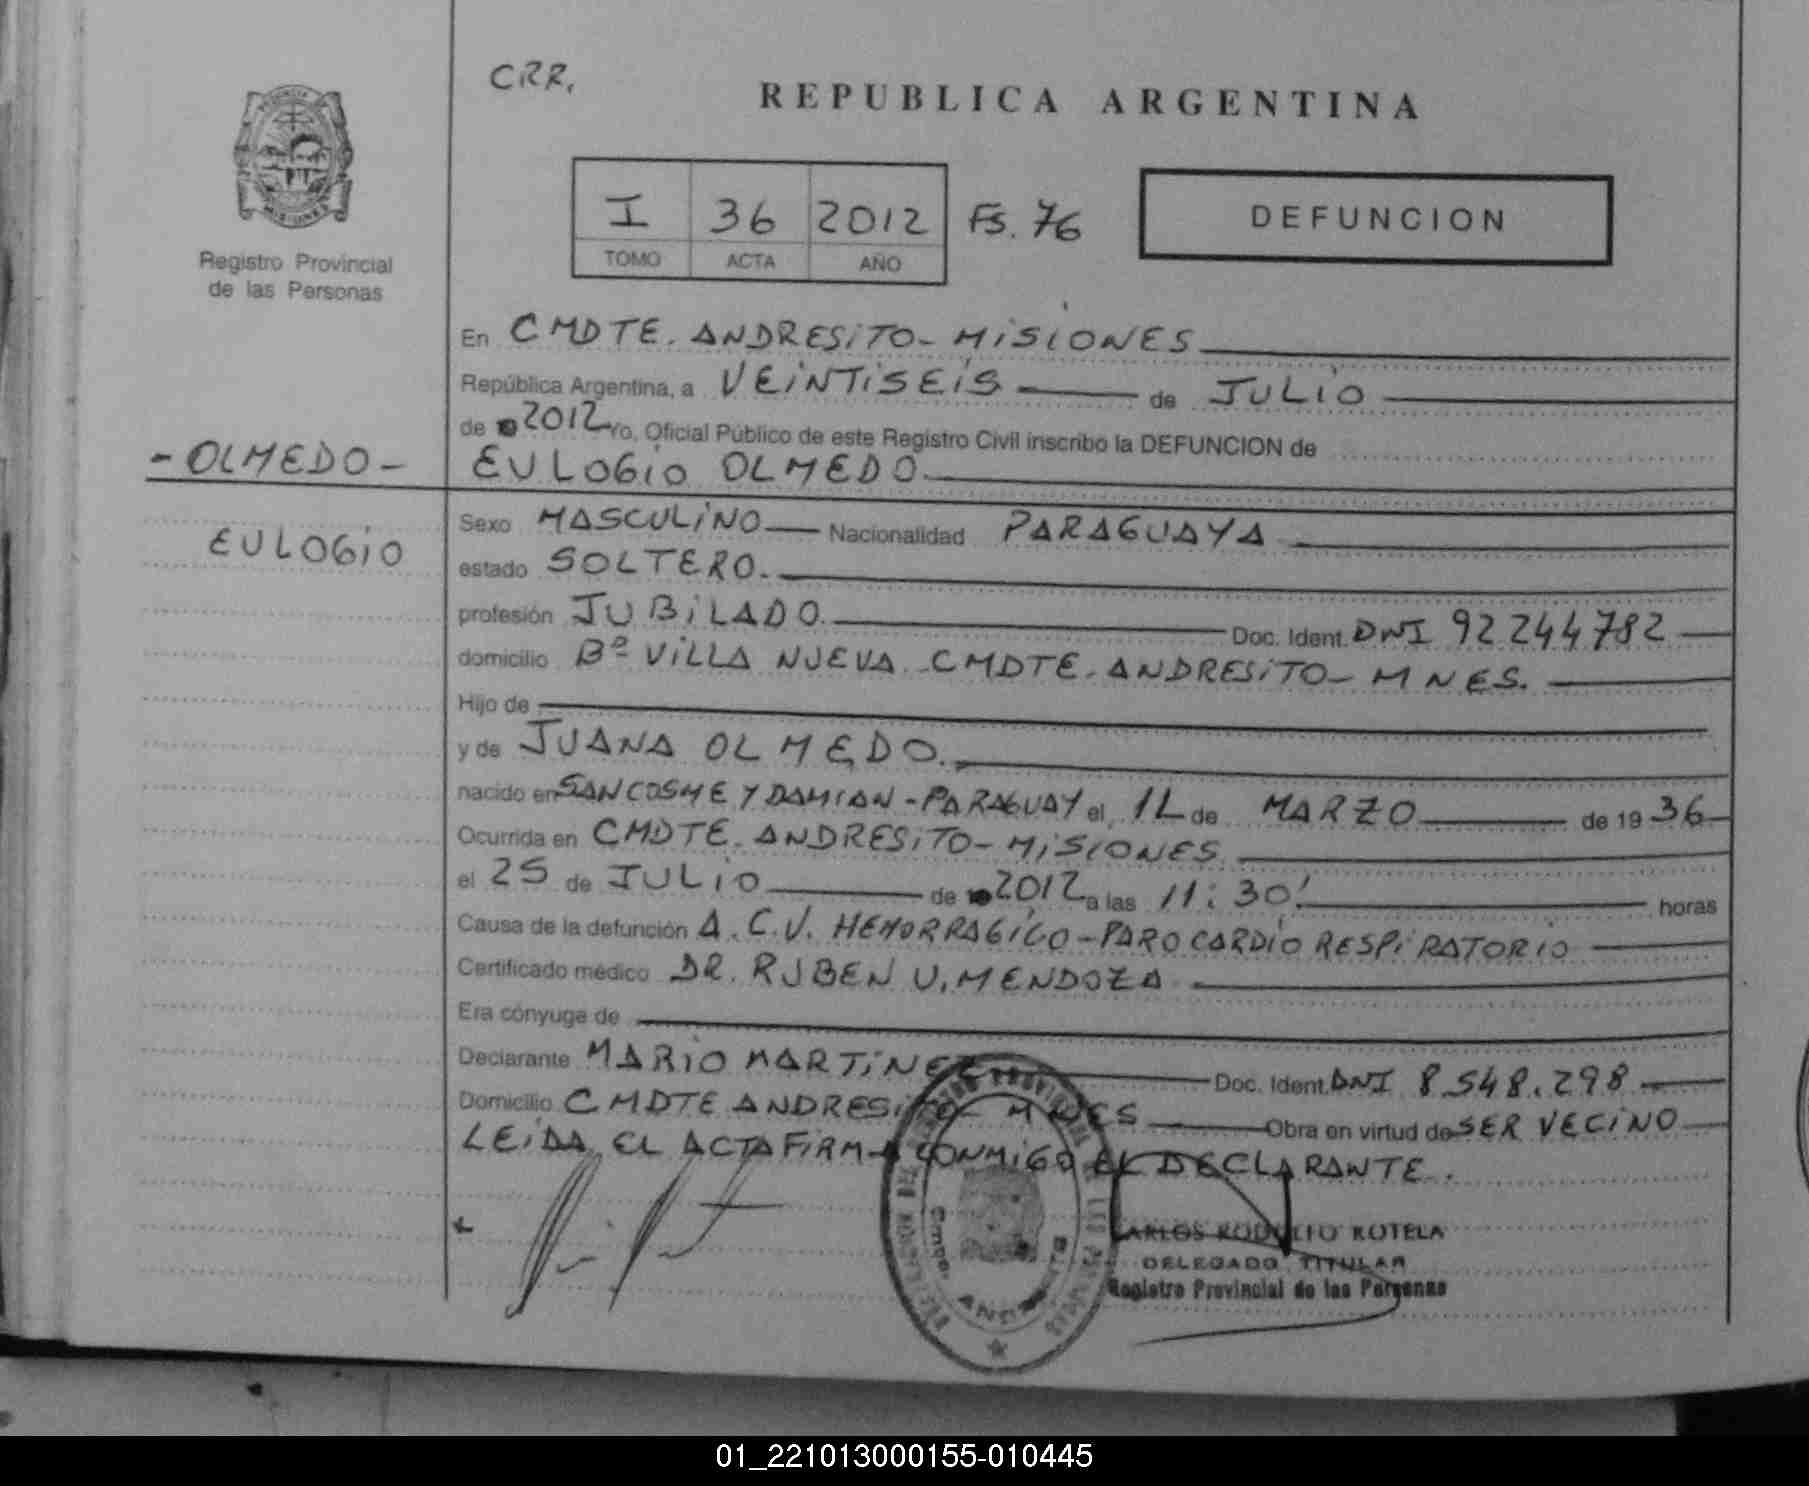 CRR.
REPUBLICA ARGENTINA
PROVINCIA
MISIONES
Registro Provincial
de las Personas
I 36 2012 FS. 76
TOMO ACTA AÑO
DEFUNCION
En CMDTE. ANDRESITO - MISIONES
República Argentina, a VEINTISEIS de JULIO
de 2012 Yo, Oficial Público de este Registro Civil inscribo la DEFUNCION de
- OLMEDO - EULOGIO OLMEDO
EULOGIO
Sexo MASCULINO Nacionalidad PARAGUAYA
estado SOLTERO.
profesión JUBILADO. Doc. Ident. DNI 92244782
domicilio Bº VILLA NUEVA - CMDTE. ANDRESITO - MNES.
Hijo de
y de JUANA OLMEDO.
nacido en SAN COSME Y DAMIAN - PARAGUAY el 11 de MARZO de 1936
Ocurrida en CMDTE. ANDRESITO - MISIONES
el 25 de JULIO de 2012 a las 11:30! horas
Causa de la defunción A.C.V. HEMORRAGICO - PARO CARDIO RESPIRATORIO
Certificado médico DR. RUBEN U. MENDOZA
Era cónyuge de
Declarante MARIO MARTINEZ Doc. Ident. DNI 8.548.298
Domicilio CMDTE. ANDRESITO - MNES Obra en virtud de SER VECINO
LEIDA EL ACTA FIRMA CONMIGO EL DECLARANTE.
CARLOS RODOLFO ROTELA
DELEGADO TITULAR
Registro Provincial de las Personas
01_221013000155-010445